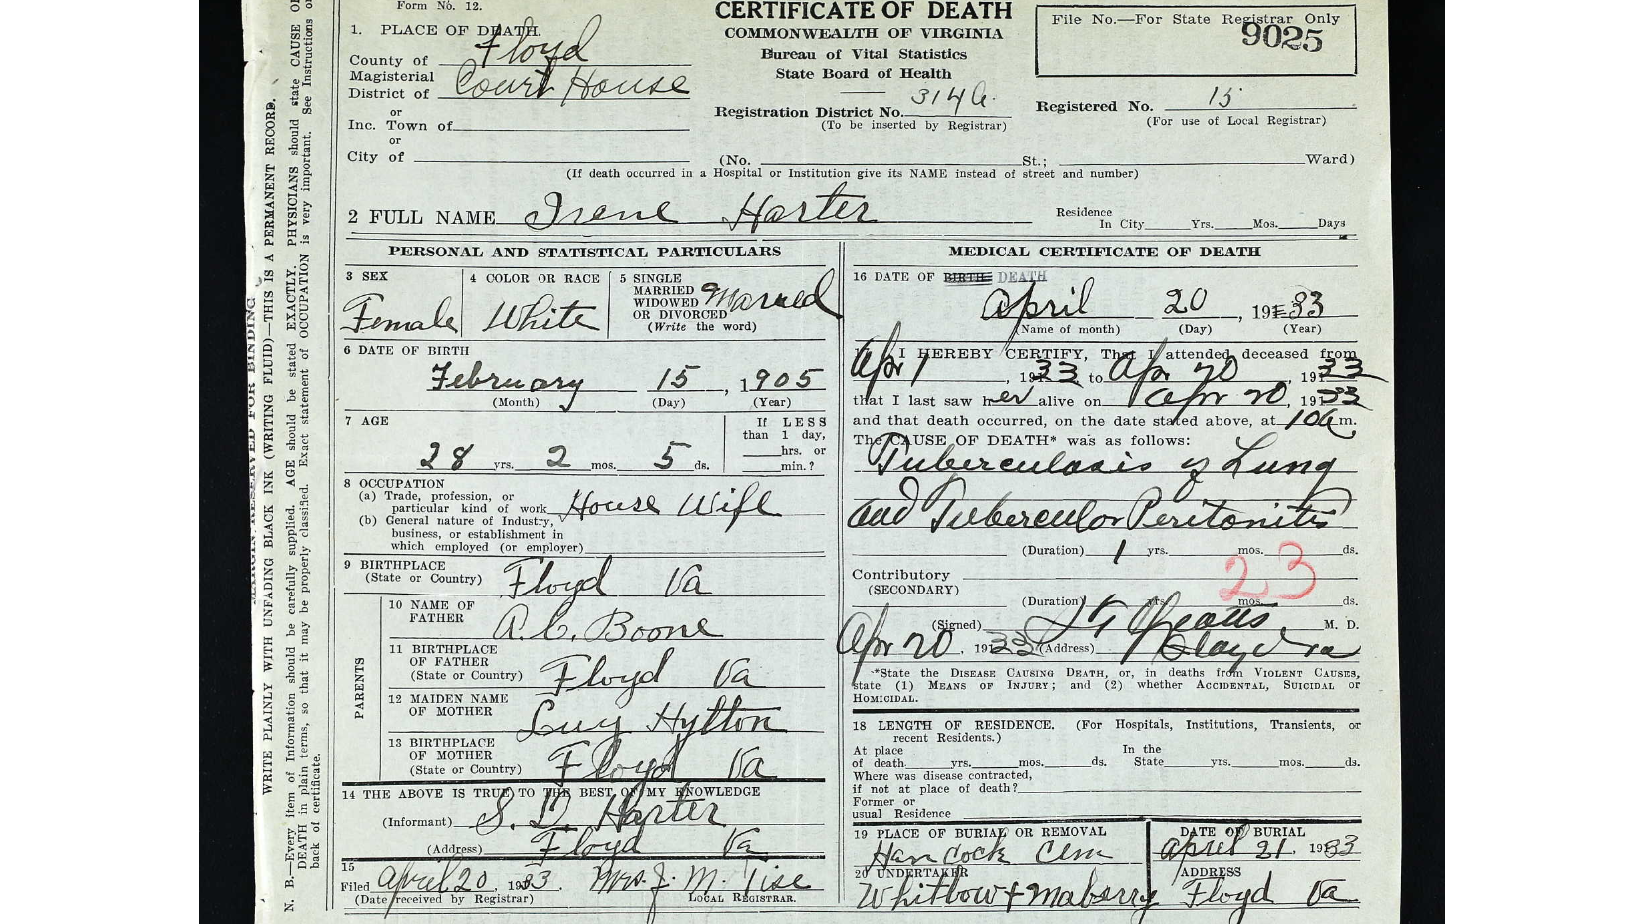 Form No. 12.
CERTIFICATE OF DEATH
COMMONWEALTH OF VIRGINIA
Bureau of Vital Statistics
State Board of Health
File No.—For State Registrar Only
9025
1. PLACE OF DEATH.
County of Floyd
Magisterial
District of Court House
or
Inc. Town of
or
City of
Registration District No. 314 a.
(To be inserted by Registrar)
Registered No. 15
(For use of Local Registrar)
(No. St.; Ward)
(If death occurred in a Hospital or Institution give its NAME instead of street and number)
2 FULL NAME Irene Harter
Residence
In City Yrs. Mos. Days
PERSONAL AND STATISTICAL PARTICULARS
3 SEX
Female
4 COLOR OR RACE
White
5 SINGLE
MARRIED
WIDOWED
OR DIVORCED
(Write the word)
Married
6 DATE OF BIRTH
February 15, 1905
(Month) (Day) (Year)
7 AGE
28 yrs. 2 mos. 5 ds.
If LESS
than 1 day,
hrs. or
min.?
8 OCCUPATION
(a) Trade, profession, or
particular kind of work House Wife
(b) General nature of Industry,
business, or establishment in
which employed (or employer)
9 BIRTHPLACE
(State or Country) Floyd Va
PARENTS
10 NAME OF
FATHER A. C. Boone
11 BIRTHPLACE
OF FATHER
(State or Country) Floyd Va
12 MAIDEN NAME
OF MOTHER Lucy Hylton
13 BIRTHPLACE
OF MOTHER
(State or Country) Floyd Va
14 THE ABOVE IS TRUE TO THE BEST OF MY KNOWLEDGE
(Informant) S. D. Harter
(Address) Floyd Va
15
Filed April 20, 1933. Mrs. J. M. Tise
(Date received by Registrar) LOCAL REGISTRAR.
MEDICAL CERTIFICATE OF DEATH
16 DATE OF BIRTH DEATH
April 20, 1933
(Name of month) (Day) (Year)
I HEREBY CERTIFY, That I attended deceased from
Apr 1, 1933 to Apr 20, 1933
that I last saw her alive on Apr 20, 1933
and that death occurred, on the date stated above, at 10 a m.
The CAUSE OF DEATH* was as follows:
Tuberculosis of Lung
and Tubercular Peritonitis
(Duration) 1 yrs. mos. ds.
23
Contributory
(SECONDARY)
(Duration) yrs. mos. ds.
(Signed) M. D.
Apr 20, 1933 (Address) Floyd Va
*State the DISEASE CAUSING DEATH, or, in deaths from VIOLENT CAUSES,
state (1) MEANS OF INJURY; and (2) whether ACCIDENTAL, SUICIDAL or
HOMICIDAL.
18 LENGTH OF RESIDENCE. (For Hospitals, Institutions, Transients, or
recent Residents.)
At place
of death yrs. mos. ds.
In the
State yrs. mos. ds.
Where was disease contracted,
if not at place of death?
Former or
usual Residence
19 PLACE OF BURIAL OR REMOVAL
Hancock Cem
DATE OF BURIAL
April 21, 1933
20 UNDERTAKER
Whitlow & Maberry
ADDRESS
Floyd Va
MARGIN RESERVED FOR BINDING
WRITE PLAINLY WITH UNFADING BLACK INK (WRITING FLUID)—THIS IS A PERMANENT RECORD.
N. B.—Every item of Information should be carefully supplied. AGE should be stated EXACTLY. PHYSICIANS should state CAUSE OF
DEATH in plain terms, so that it may be properly classified. Exact statement of OCCUPATION is very important. See Instructions on
back of certificate.